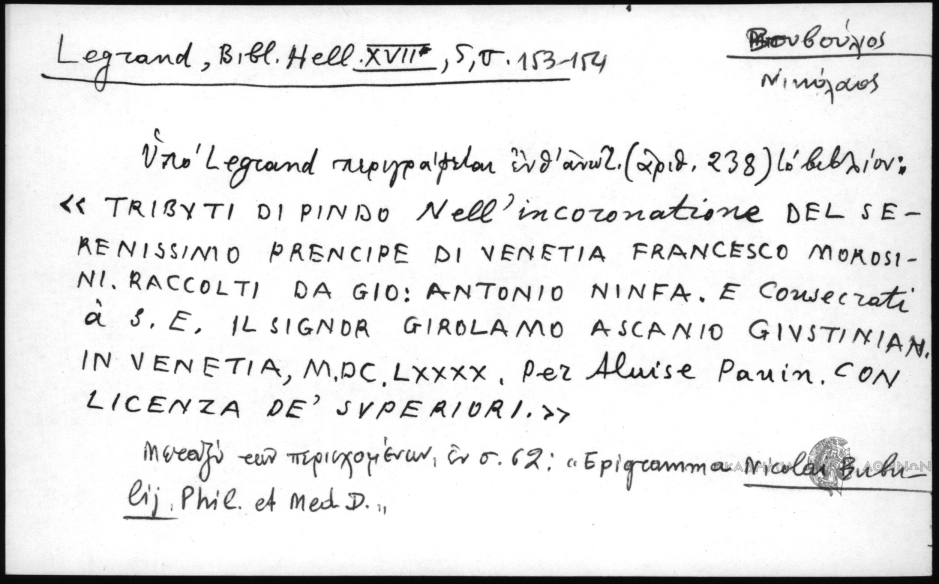 Legrand, Bibl. Hell. XVIIe, 5, σ. 153-154
Βουβούλιος
Νικόλαος
Ὑπό Legrand περιγράφεται ἐνθ' ἀνωτ. (ἀριθ. 238) τό βιβλίον:
« TRIBVTI DI PINDO Nell' incoronatione DEL SE-
RENISSIMO PRENCIPE DI VENETIA FRANCESCO MOROSI-
NI. RACCOLTI DA GIO: ANTONIO NINFA. E Consecrati
à S. E. IL SIGNOR GIROLAMO ASCANIO GIVSTINIAN.
IN VENETIA, M.DC.LXXXX. Per Aluise Pauin. CON
LICENZA DE' SVPERIORI.»
Μεταξύ τῶν περιεχομένων, ἐν σ. 62: "Epigramma Nicolai Bubu-
lij, Phil. et Med D.„